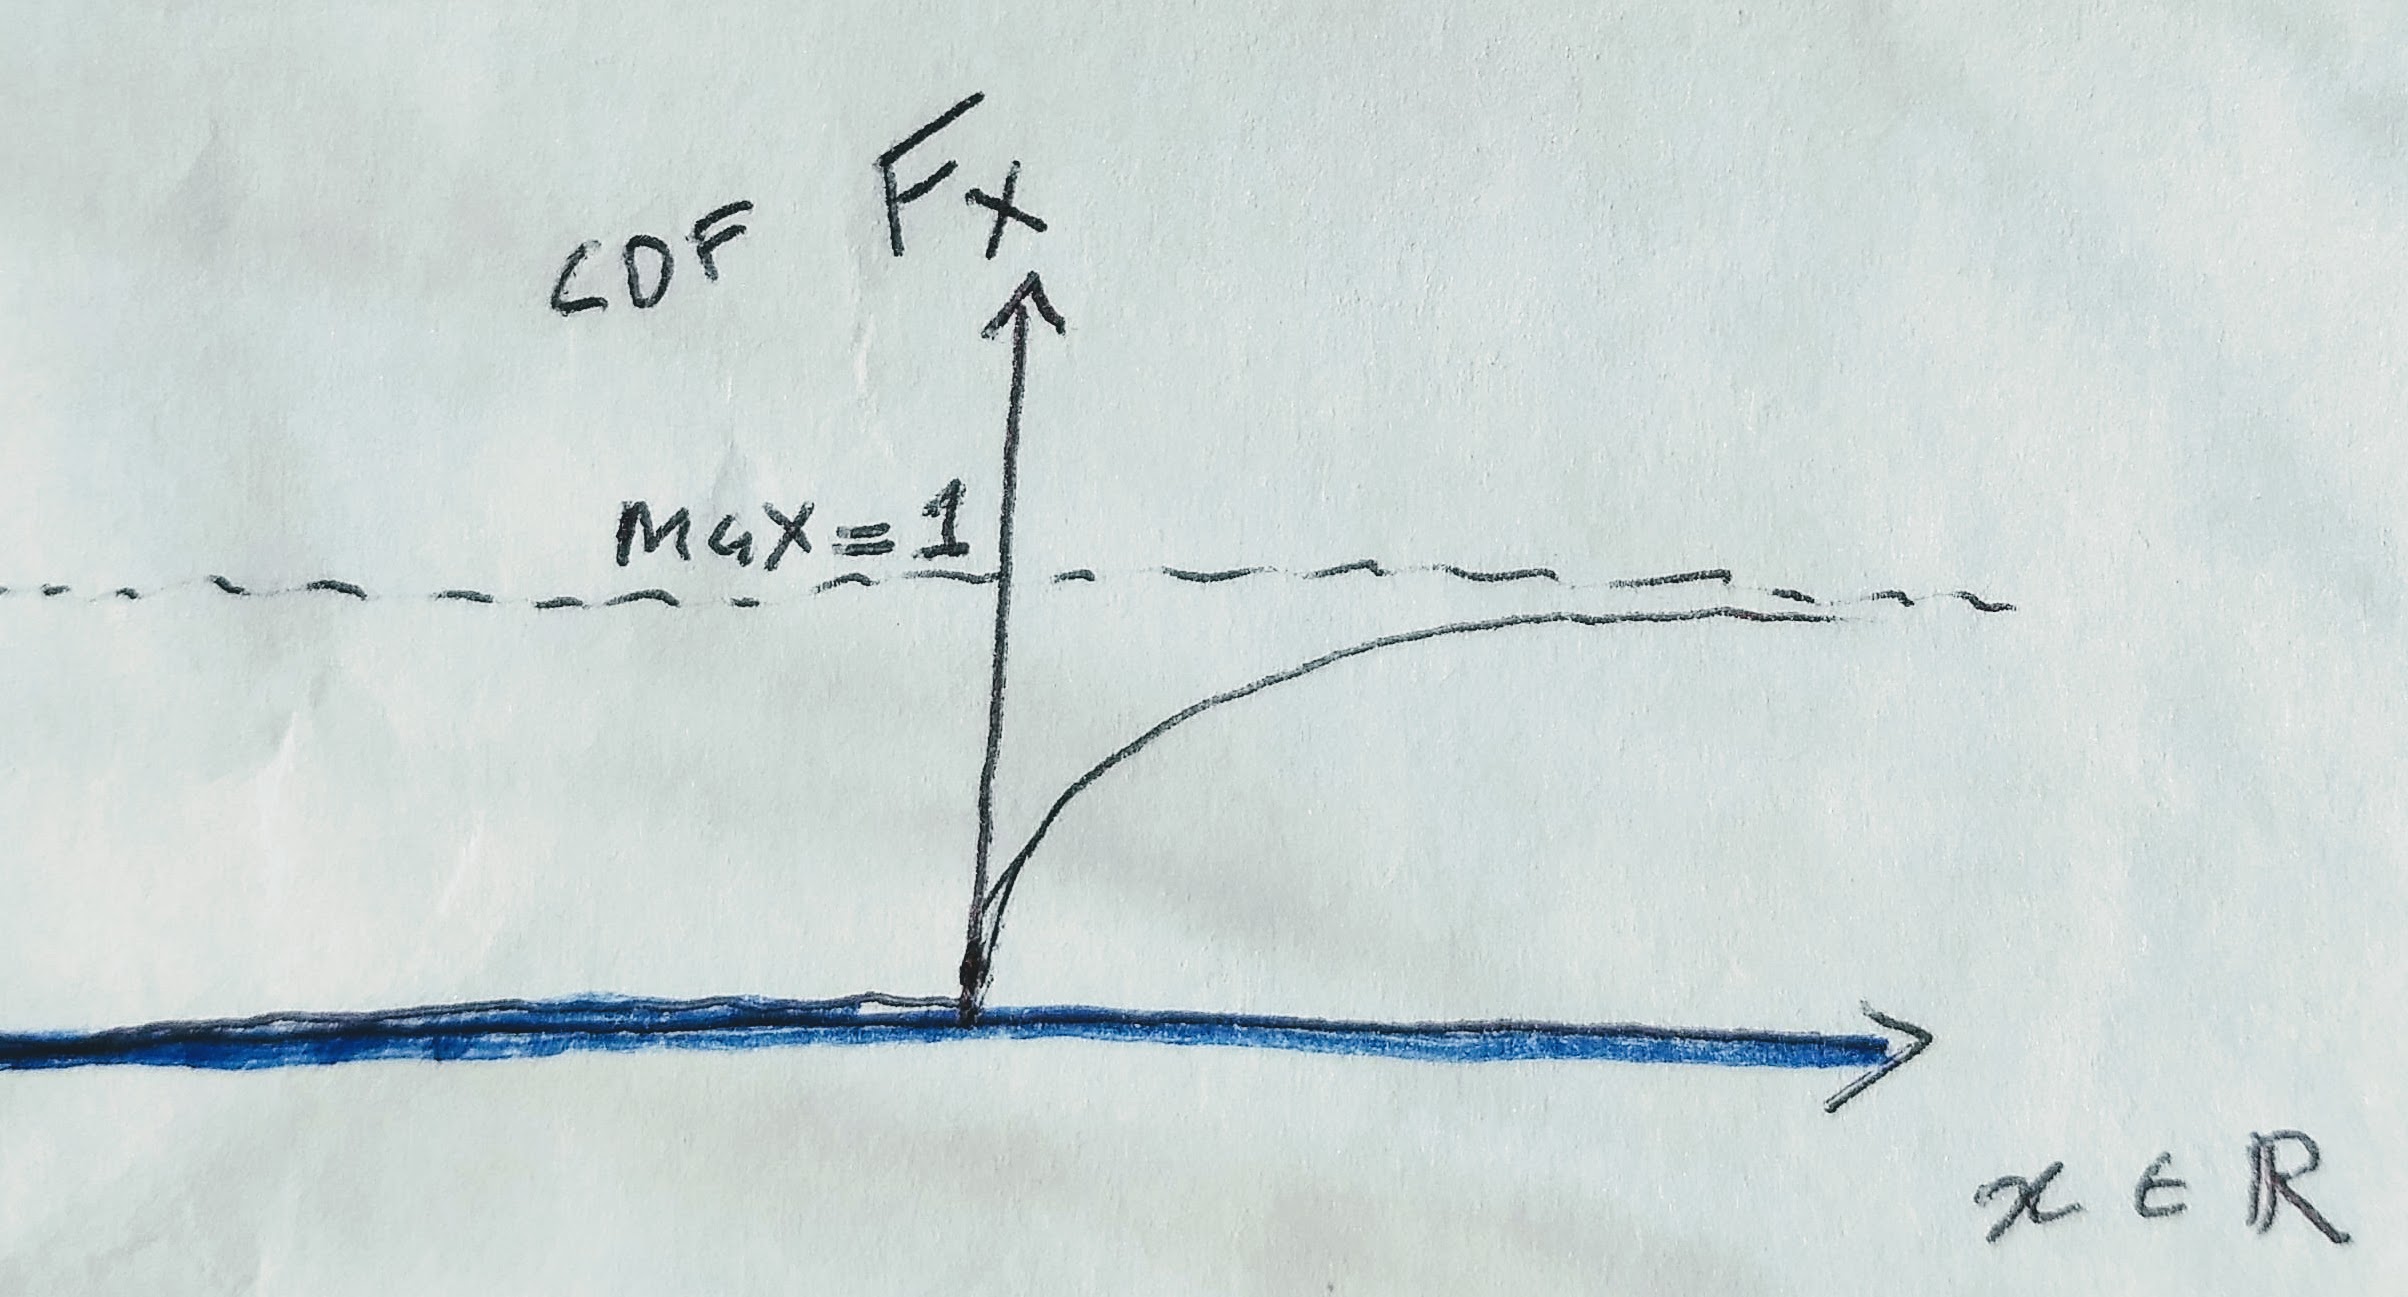 CDF Fx
Max = 1
x ∈ ℝ